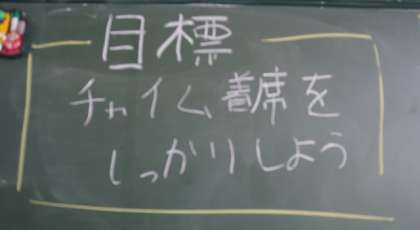 目標
チャイム着席を
しっかりしよう